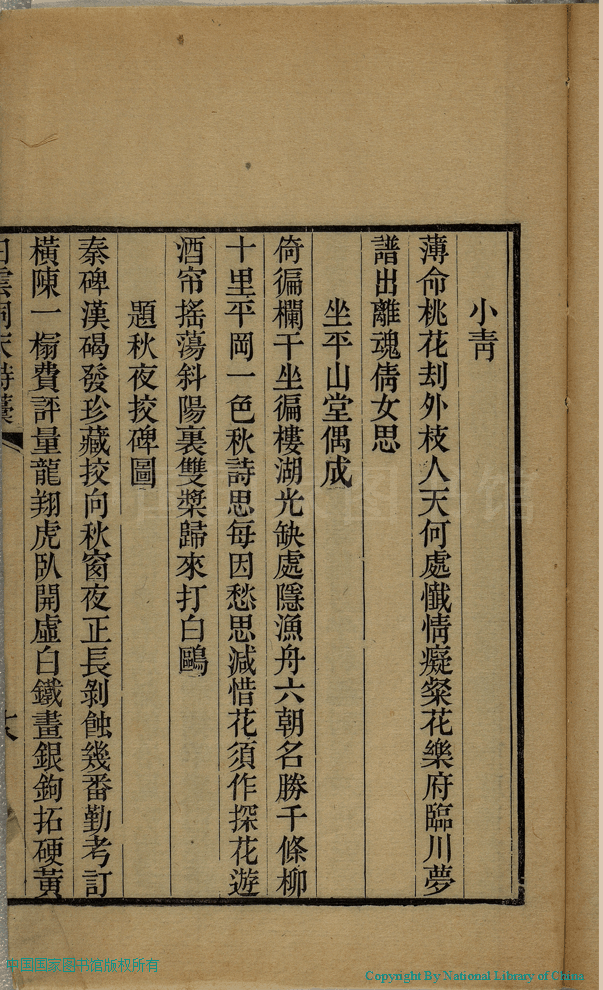 小靑
薄命桃花刦外枝人天何處懺情癡粲花樂府臨川夢
譜出離魂倩女思
坐平山堂偶成
倚徧欄干坐徧樓湖光缺處隱漁舟六朝名勝千條柳
十里平岡一色秋詩思每因愁思減惜花須作探花遊
酒帘搖蕩斜陽裏雙槳歸來打白鷗
題秋夜挍碑圖
秦碑漢碣發珍藏挍向秋窗夜正長剝蝕幾番勤考訂
橫陳一榻費評量龍翔虎臥開虛白鐵畫銀鉤拓硬黃
中国国家图书馆版权所有
Copyright By National Library of China